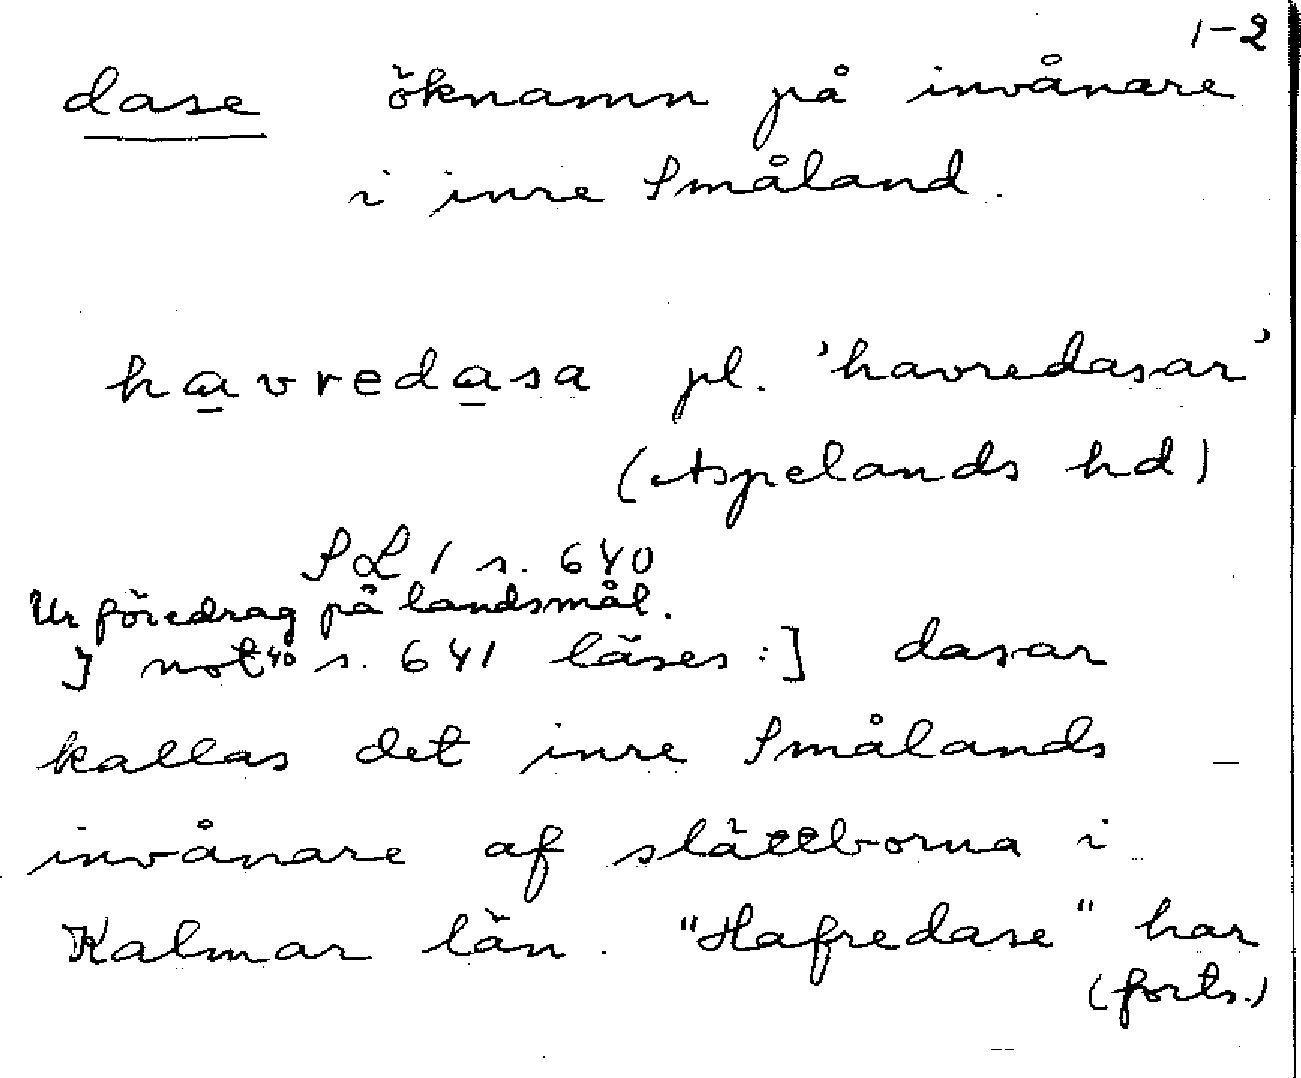 1-2
dase öknamn på invånare
i inre Småland.
havredasa pl. 'havredasar'
(Aspelands hd)
SL 1 s. 640
Ur föredrag på landsmål.
I not 40 s. 641 läses:] dasar
kallas det inre Smålands
invånare af slättborna i
Kalmar län. "Hafredase" har
(forts.)